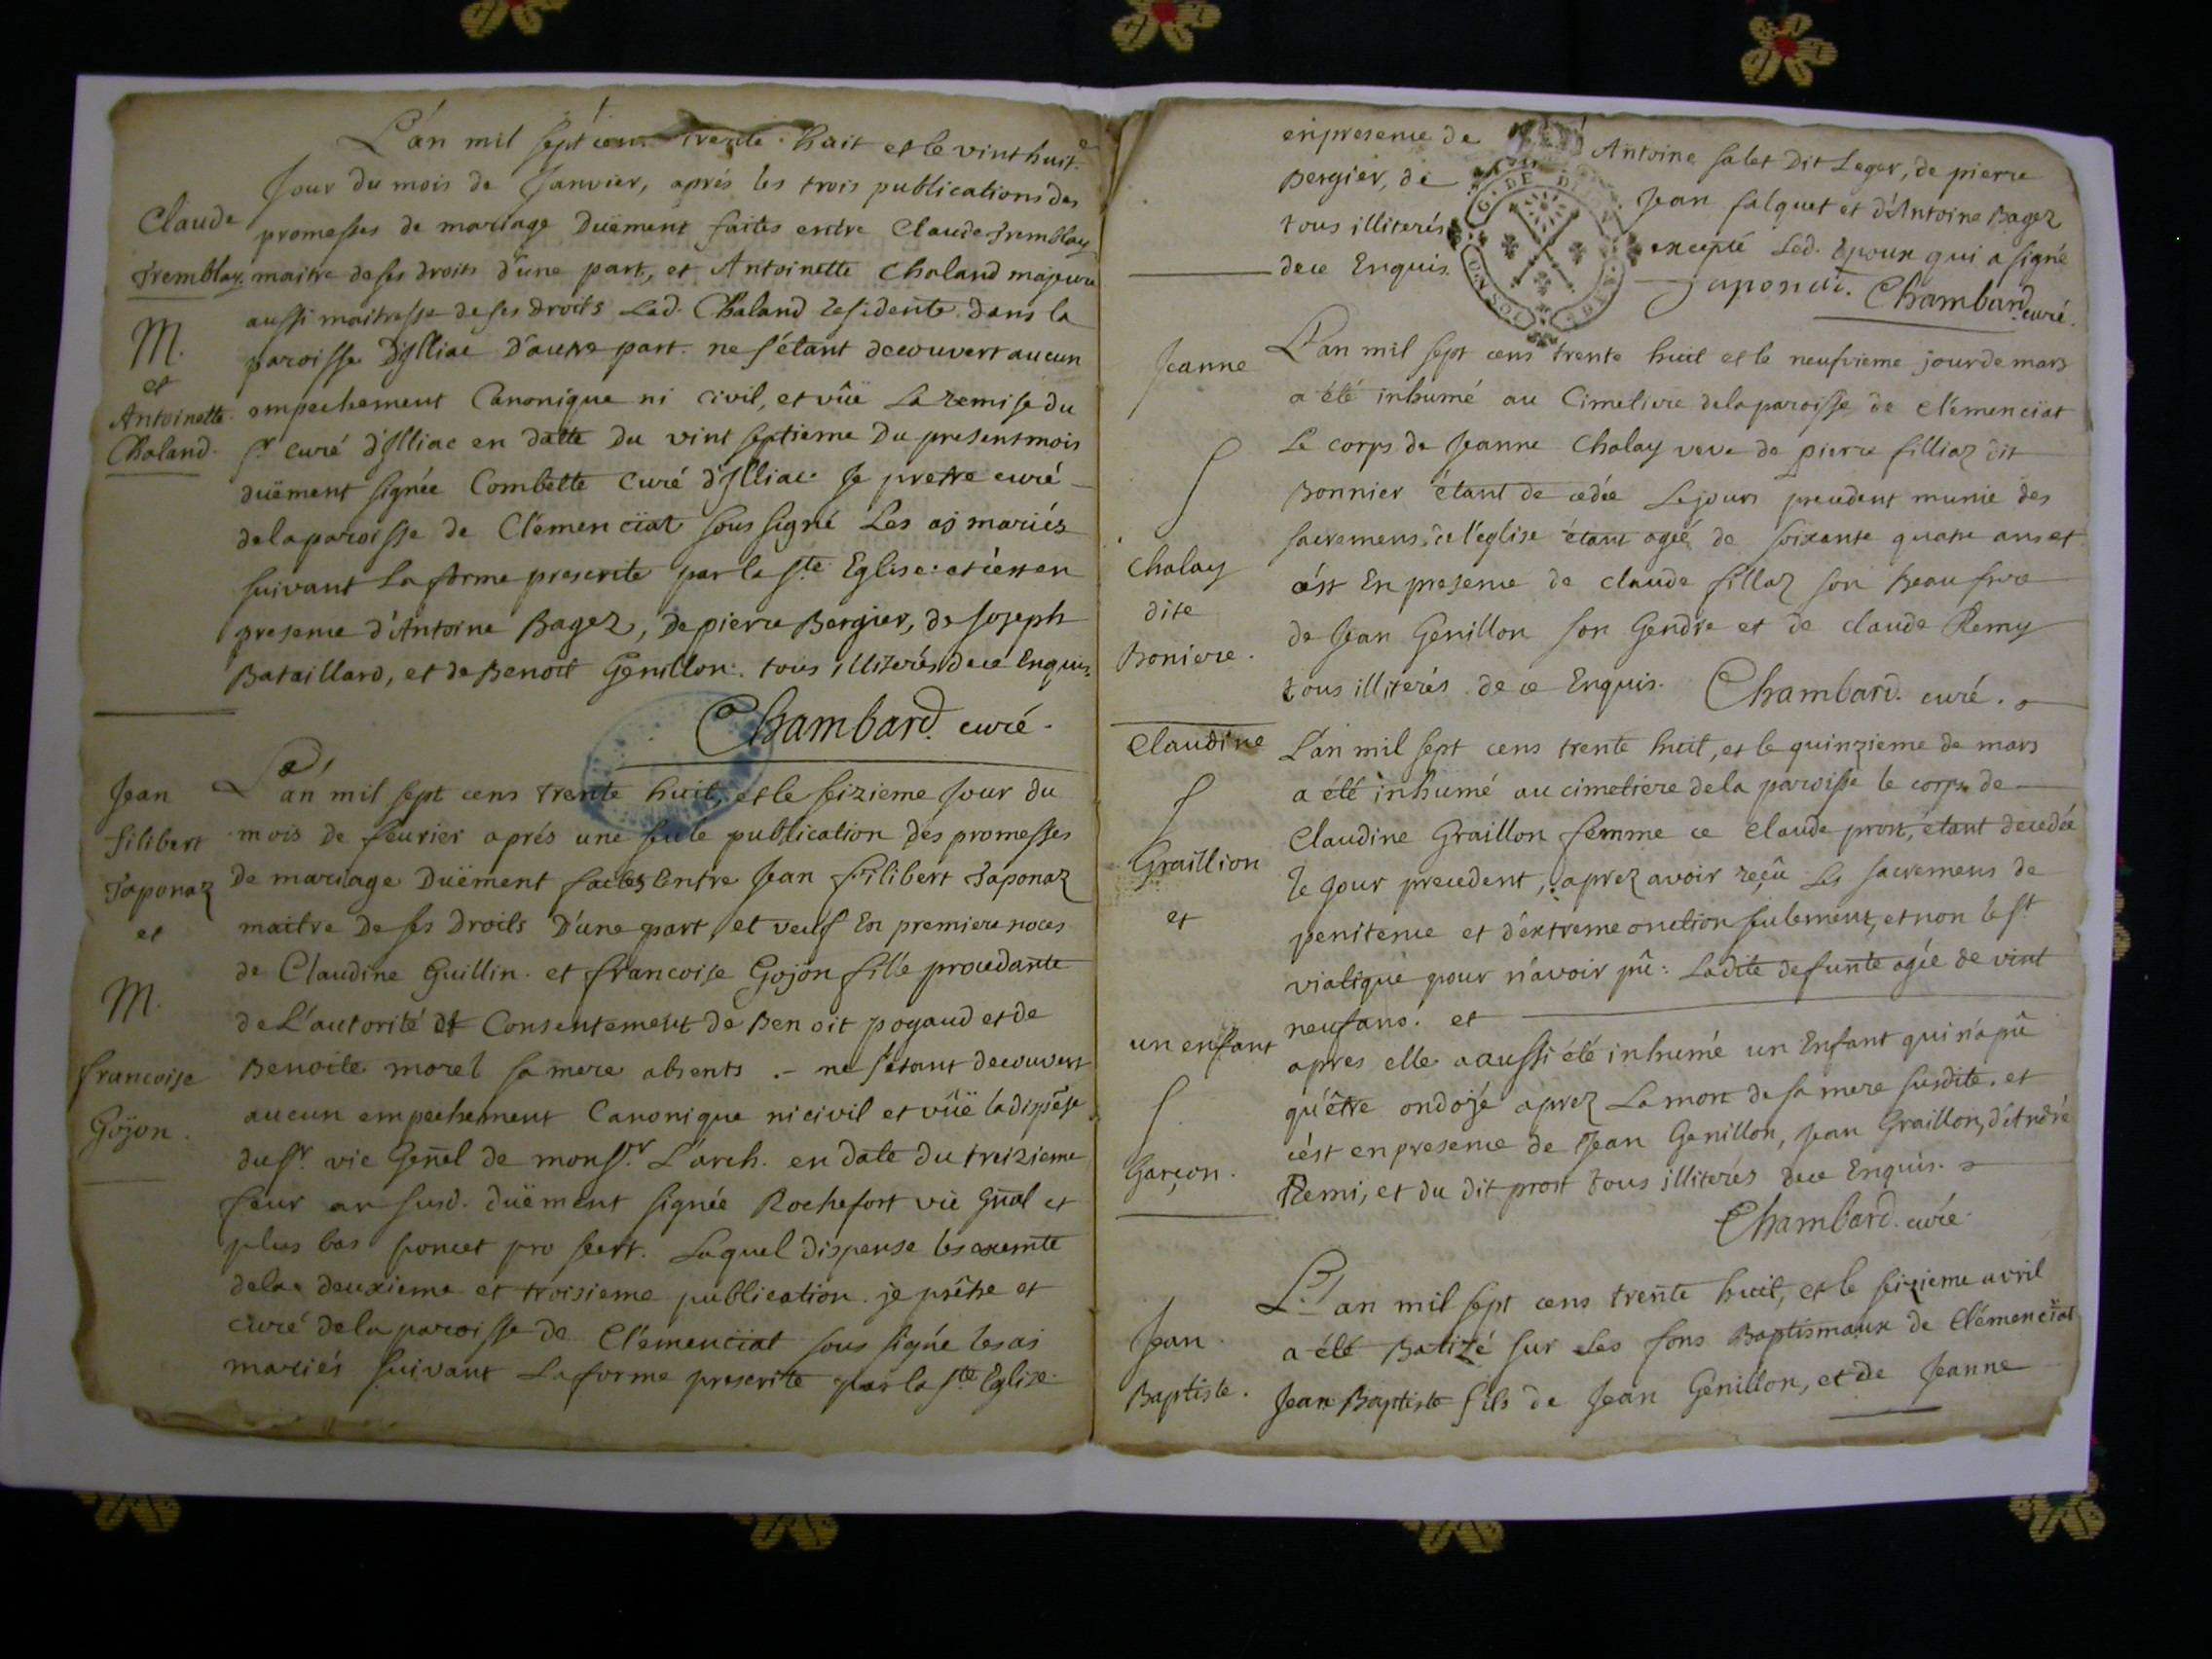 L'an mil sept cens trente huit et le vint huit.e
Jour du mois de Janvier, aprés les trois publications des
Claude
promesses de mariage Duëment faites entre Claude Tremblay
Tremblay.
maitre de ses droits d'une part, et Antoinette Chaland majeure
aussi maitresse de ses droits Lad. Chaland residente dans la
M.
paroisse D'Illiac D'autre part. ne s'étant decouvert aucun
et
Antoinette
empechement Canonique ni civil, et vûë La remise du
Chaland.
Sr. curé d'Illiac en datte Du vint septieme Du present mois
duëment signée Combette Curé d'Illiac Je pretre curé
de la paroisse de Clémenciat sous signé Les aj mariés
suivant La forme prescrite par la Ste. Eglise: et c'est en
presence d'Antoine Bagez, De pierre Bergier, de Joseph
Bataillard, et de Benoît Genillon: tous illiterés de ce Enquis.
Chambard. curé.
Jean
L'an mil sept cens trente huit, et le seizieme Jour du
filibert
mois de feurier aprés une seule publication des promesses
Taponaz
De mariage Duëment faites Entre Jean filibert Taponaz
et
maitre De ses Droits D'une part, et veuf En premiere noces
de Claudine Guillin. et francoise Gojon fille procedante
M.
de L'autorité et Consentement de Benoit pogaud et de
francoise
Benoite morel sa mere absents .- ne s'étant decouvert
Gojon.
aucun empechement Canonique ni civil et vûë la dispēse
du Sr. vic Genel de monsr. L'arch. en date du treizieme
feur an susd. duëment signée Rochefort vic Gnal et
plus bas poncet pro secrt. Laquel dispense les exemte
de la deuxieme et troisieme publication. je prêtre et
curé de la paroisse de Clémenciat sous signé les ai
mariés suivant La forme prescrite par la Ste Eglise.
en presence de Antoine salet Dit Leger, de pierre
Bergier, de Jean falquet et d'Antoine Bagez
tous illiterés excepté Led. Epoux qui a signé
de ce Enquis.
G. DE DI
Chambard curé.
Jeanne
L'an mil sept cens trente huit et le neufvieme jour de mars
a été inhumé au Cimetiere de la paroisse de Clémencïat
Le corps de Jeanne Chalay veve de pierre filliaz dit
Bonnier étant decedée Le jour precedent munie des
sacremens de l'église étant agée de soixante quatre ans et
Chalay
c'est En presence de claude fillaz son Beau frere
dite
de Jean Genillon son Gendre et de claude Remy
Boniere.
tous illiterés de ce Enquis. Chambard. curé.
Claudine
L'an mil sept cens trente huit, et le quinzieme de mars
a été inhumé au cimetiere de la paroisse le corps de
Claudine Graillon femme de Claude prost, étant decedée
Graillion
le jour precedent, aprez avoir reçû Les sacremens de
et
penitence et d'extreme onction seulement, et non le St
viatique pour n'avoir pû: Ladite defunte agée de vint
neuf ans. et
un enfant
apres elle a aussi été inhumé un Enfant qui n'a pû
qu'être ondojé aprez La mort de sa mere susdite. et
c'est en presence de Jean Genillon, Jean Graillon, d'André
Garçon.
Remi, et du dit prost tous illiterés de ce Enquis.
Chambard. curé.
L'an mil sept cens trente huit, et le seizieme avril
Jean
a été Batizé sur Les fons Baptismaux de Clémencïat
Baptiste.
Jean Baptiste fils de Jean Genillon, et de Jeanne